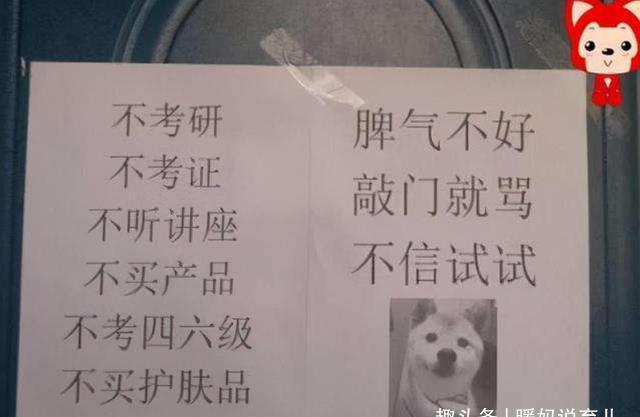 不考研
不考证
不听讲座
不买产品
不考四六级
不买护肤品
脾气不好
敲门就骂
不信试试
趣头条 | 暖妈说育儿